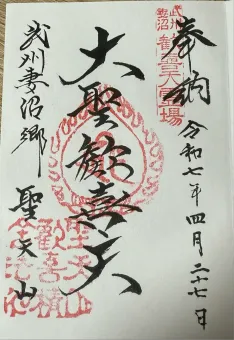 奉納
令和七年四月二十七日
武州
妻沼
歓喜天霊場
大聖歓喜天
武州妻沼郷
聖天山